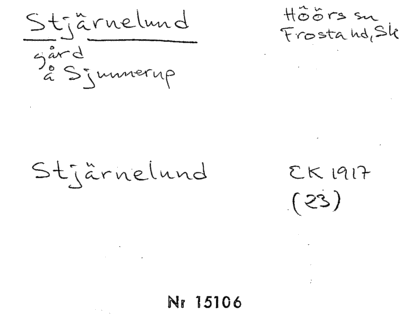 Stjärnelund
Höörs sn
Frosta hd, Sk
gård
å Sjunnerup
Stjärnelund
EK 1917
(23)
Nr 15106